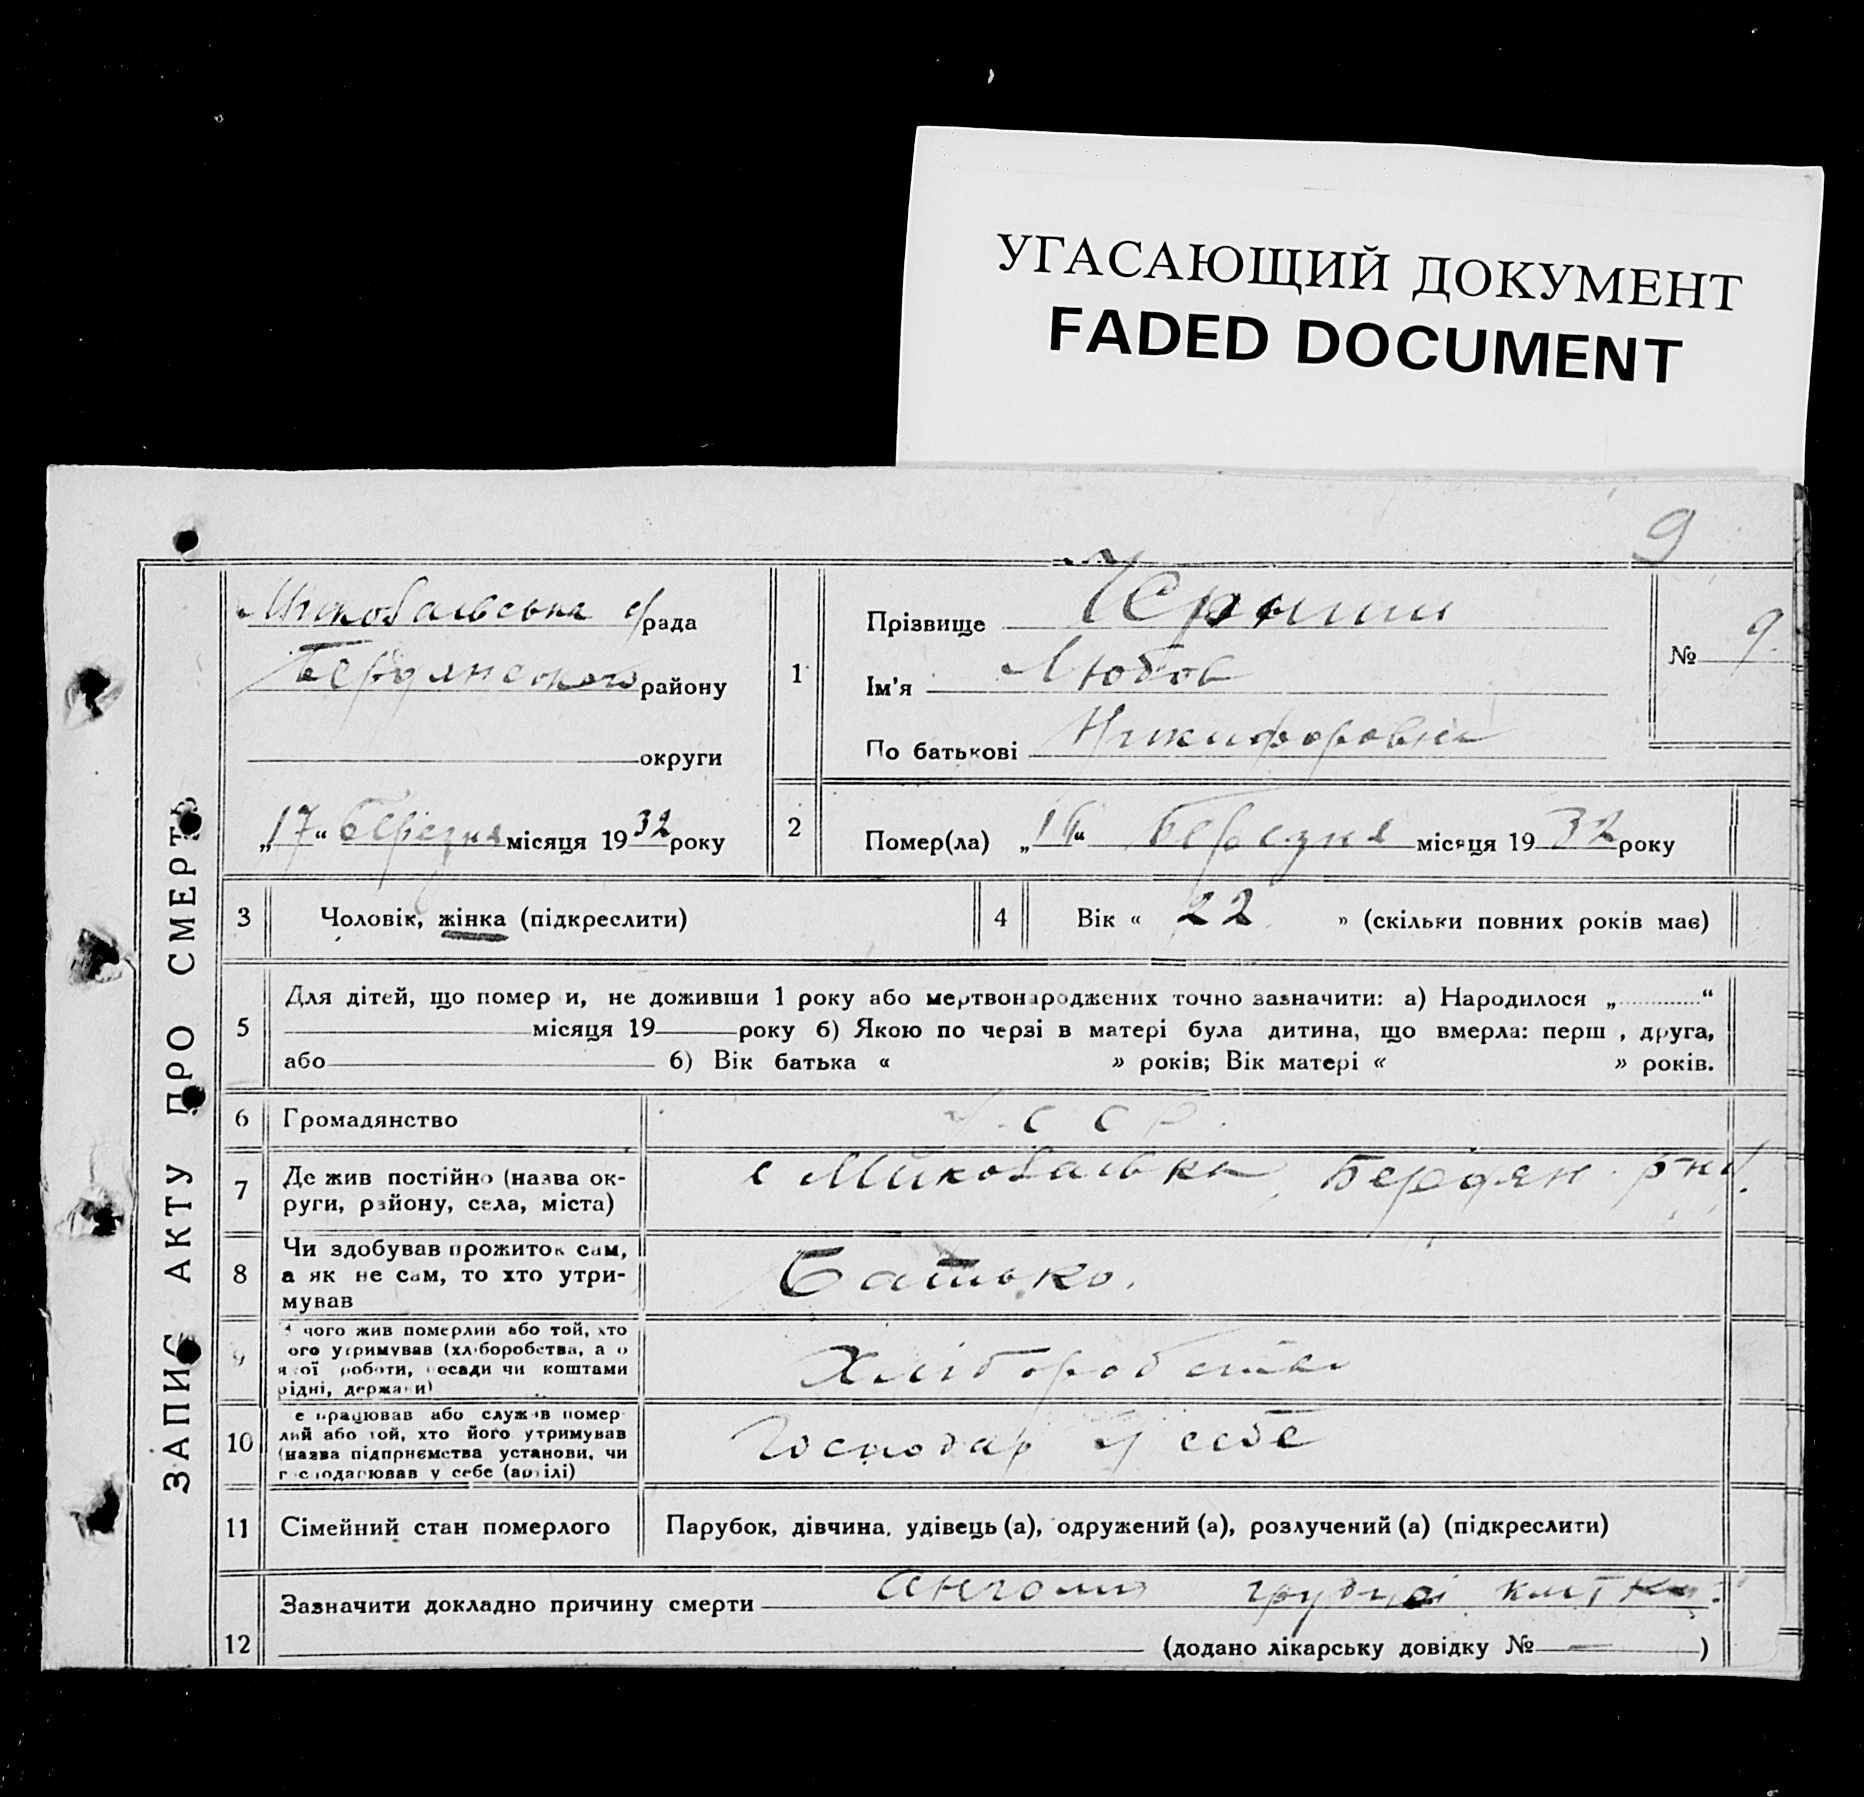 УГАСАЮЩИЙ ДОКУМЕНТ
FADED DOCUMENT
9
ЗАПИС АКТУ ПРО СМЕРТЬ
Миковалвська с/рада
Бердянського району
округи
„17“ березня місяця 1932 року
1
Прізвище
Ім'я Любов
По батькові Никифоровна
№ 9.
2
Помер(ла) „16“ Березня місяця 1932 року
3 Чоловік, жінка (підкреслити)
4 Вік « 22 » (скільки повних років має)
5 Для дітей, що помер и, не доживши 1 року або мертвонароджених точно зазначити: а) Народилося „ “
місяця 19 року б) Якою по черзі в матері була дитина, що вмерла: перш , друга,
або б) Вік батька « » років; Вік матері « » років.
6 Громадянство У.С С Р.
7 Де жив постійно (назва ок-
руги, району, села, міста) с Миковалвка, Бердян. р-ну.
8 Чи здобував прожиток сам,
а як не сам, то хто утри-
мував Батько.
9 чого жив померлий або той, хто
ого утримував (хліборобства, а о
якої роботи, посади чи коштами
рідні, держави) Хліборобства
10 е працював або служив помер
лий або той, хто його утримував
(назва підприємства установи, чи
господарював у себе (артілі) Господар у себе
11 Сімейний стан померлого Парубок, дівчина, удівець (а), одружений (а), розлучений (а) (підкреслити)
12 Зазначити докладно причину смерти грудної клітки
(додано лікарську довідку № — )